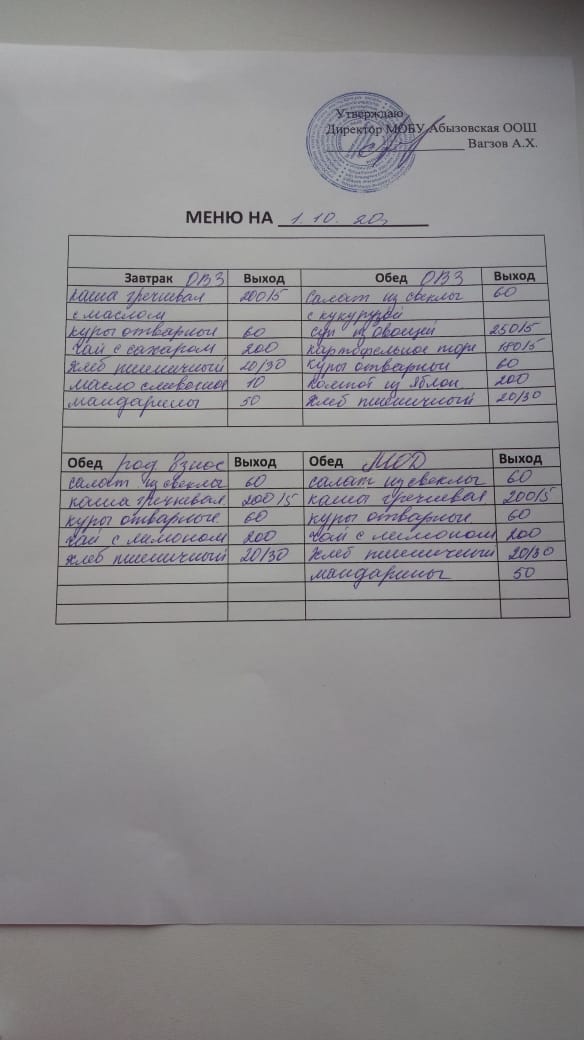 Утверждаю
Директор МОБУ Абызовская ООШ
Вагзов А.Х.
МЕНЮ НА 1.10.20г
Завтрак ОВЗ Выход Обед ОВЗ Выход
каша гречневая 200/5 Салат из свеклы 60
с маслом с кукурузой
куры отварные 60 суп из овощей 250/5
чай с сахаром 200 картофельное пюре 180/5
хлеб пшеничный 20/30 куры отварные 60
масло сливочное 10 компот из яблок 200
мандарины 50 хлеб пшеничный 20/30
Обед род взнос Выход Обед МОД Выход
салат из свеклы 60 салат из свеклы 60
каша гречневая 200/5 каша гречневая 200/5
куры отварные 60 куры отварные 60
чай с лимоном 200 чай с лимоном 200
хлеб пшеничный 20/30 хлеб пшеничный 20/30
мандарины 50